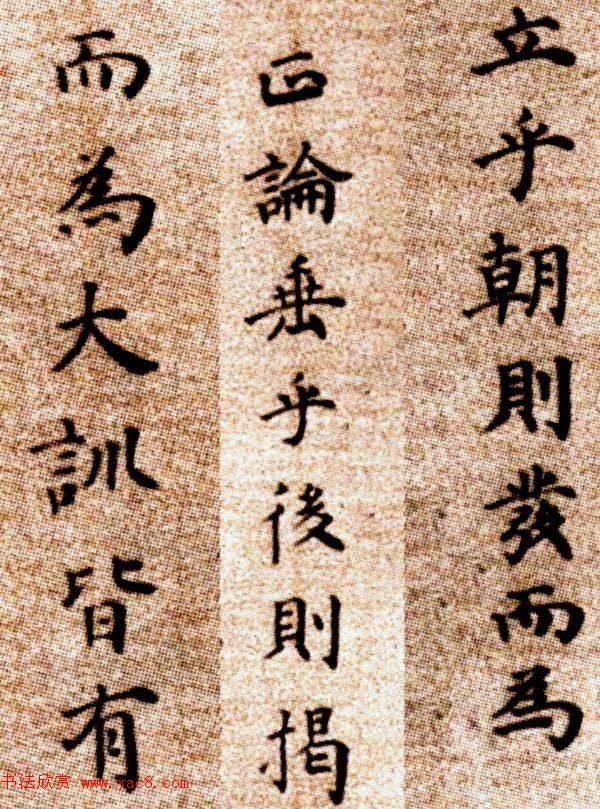 立乎朝則發而為
正論垂乎後則揭
而為大訓皆有
书法欣赏 www.jac8.com